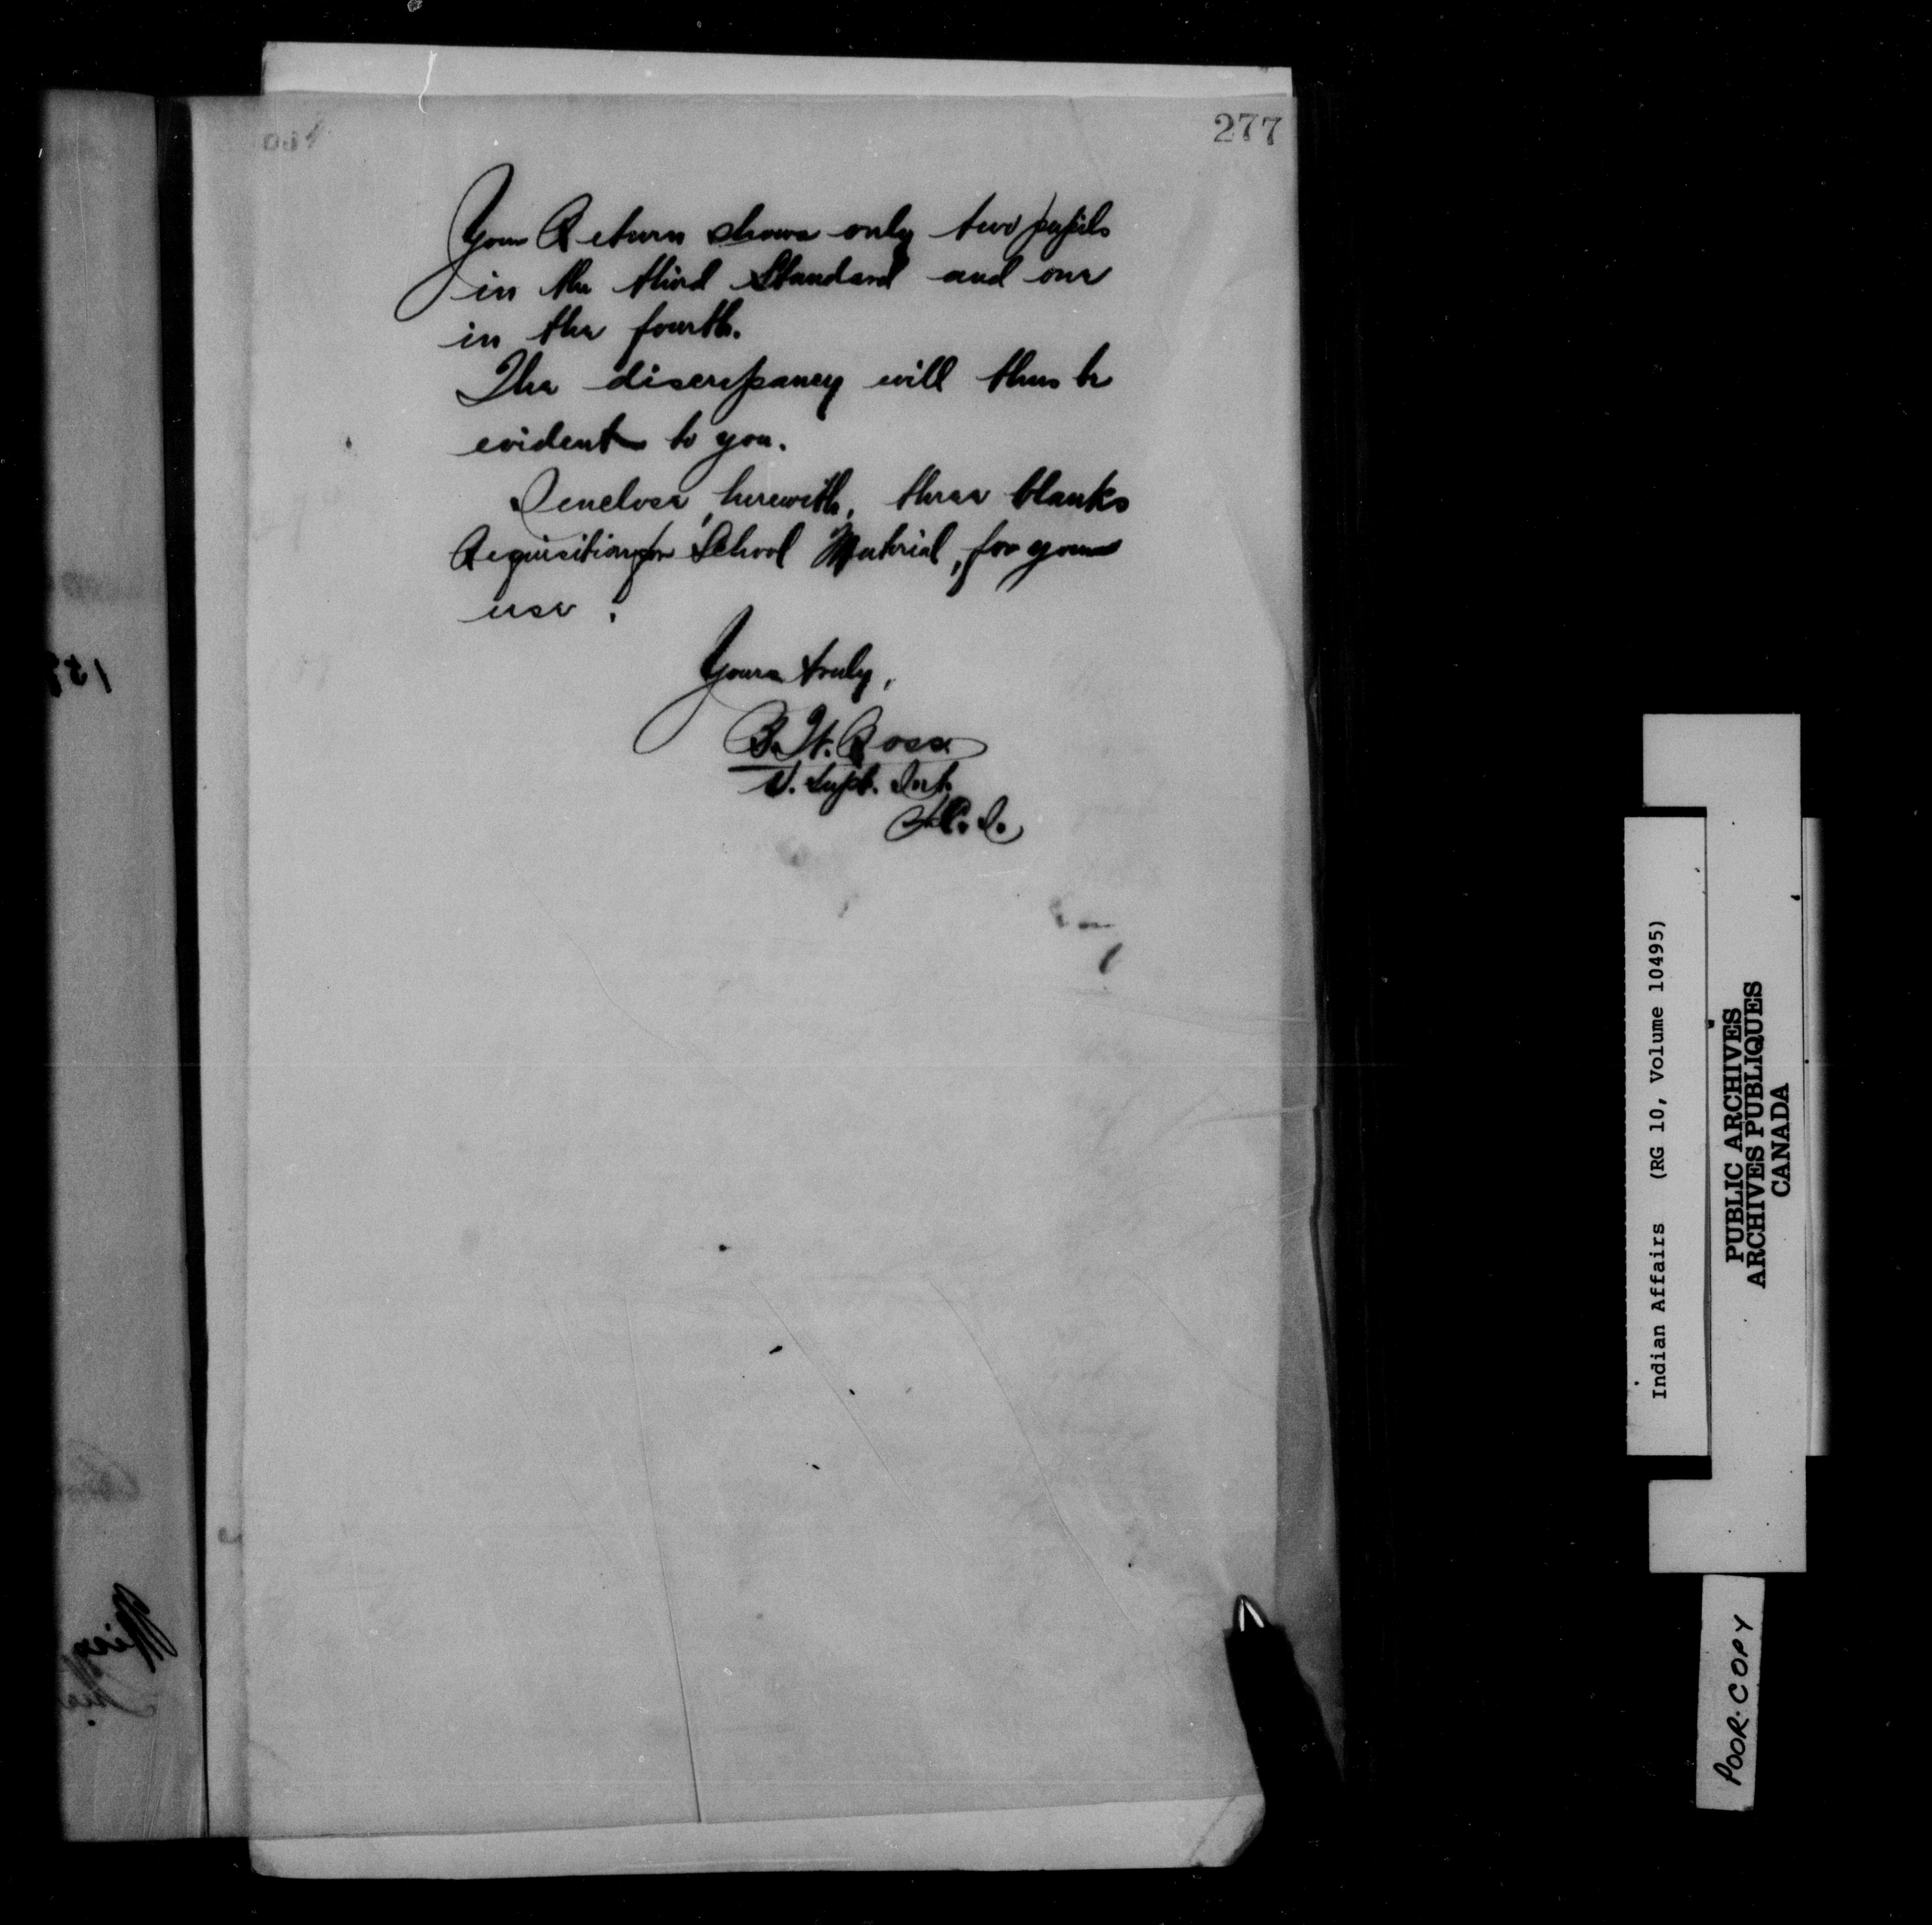 277
Your Return shows only two pupils
in the third Standard and one
in the fourth.
The discrepancy will thus be
evident to you.
I enclose, herewith, three blanks
Requisition for School Material, for your
use.
Yours truly,
Ross
Supt.
Indian Affairs (RG 10, Volume 10495)
PUBLIC ARCHIVES
ARCHIVES PUBLIQUES
CANADA
POOR COPY